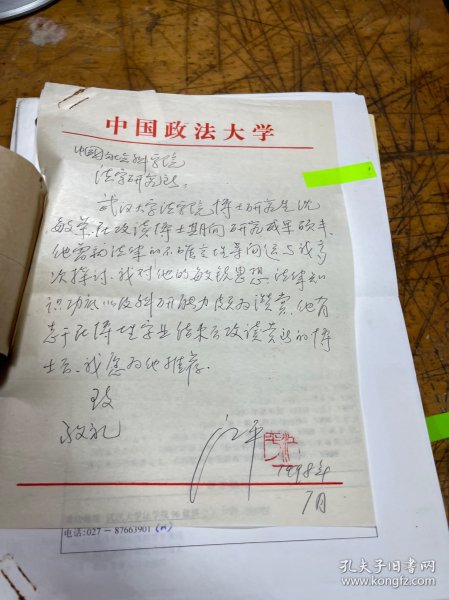 中国政法大学
中国社会科学院
法学研究所:
武汉大学法学院博士研究生沈
敏荣在攻读博士期间研究成果硕丰,
他曾就法律的不确定性等问题与我多
次探讨,我对他的敏锐思想、法律知
识功底以及科研能力颇为赞赏。他有
志于在博士学业结束后攻读贵所的博
士后,我愿为他推荐。
致
敬礼
江平
1998年
7月
电话:027-87663901
孔夫子旧书网
www.kongfz.com